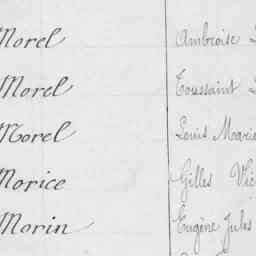 Morel Ambroise
Morel Toussaint
Morel Louis Marie
Morice Gilles
Morin Eugène Jules